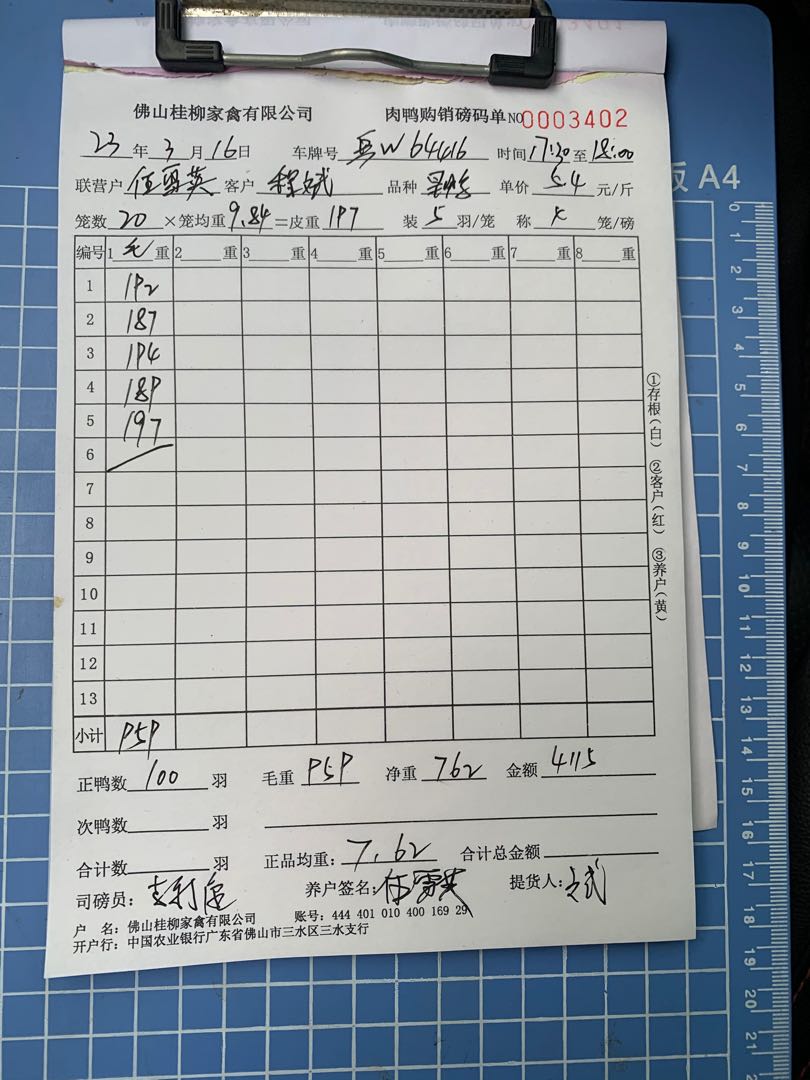 佛山桂柳家禽有限公司 肉鸭购销磅码单 NO0003402
23 年 3 月 16 日 车牌号 粤W 64416 时间 17:30 至 18:00
联营户 伍雪英 客户 斌 品种 单价 5.4 元/斤
笼数 20 ×笼均重 9.84 =皮重 197 装 5 羽/笼 称 4 笼/磅
编号 1 毛 重 2 重 3 重 4 重 5 重 6 重 7 重 8 重
1 192
2 187
3 194
4 189
5 197
6
7
8
9
10
11
12
13
小计 959
正鸭数 100 羽 毛重 959 净重 762 金额 4115
次鸭数 羽
合计数 羽 正品均重: 7.62 合计总金额
司磅员: 养户签名: 伍雪英 提货人:
户 名: 佛山桂柳家禽有限公司 账号: 444 401 010 400 169 29
开户行: 中国农业银行广东省佛山市三水区三水支行
①存根(白) ②客户(红) ③养户(黄)
板 A4
0
1
2
3
4
5
6
7
8
9
10
11
12
13
14
15
16
17
18
19
20
21